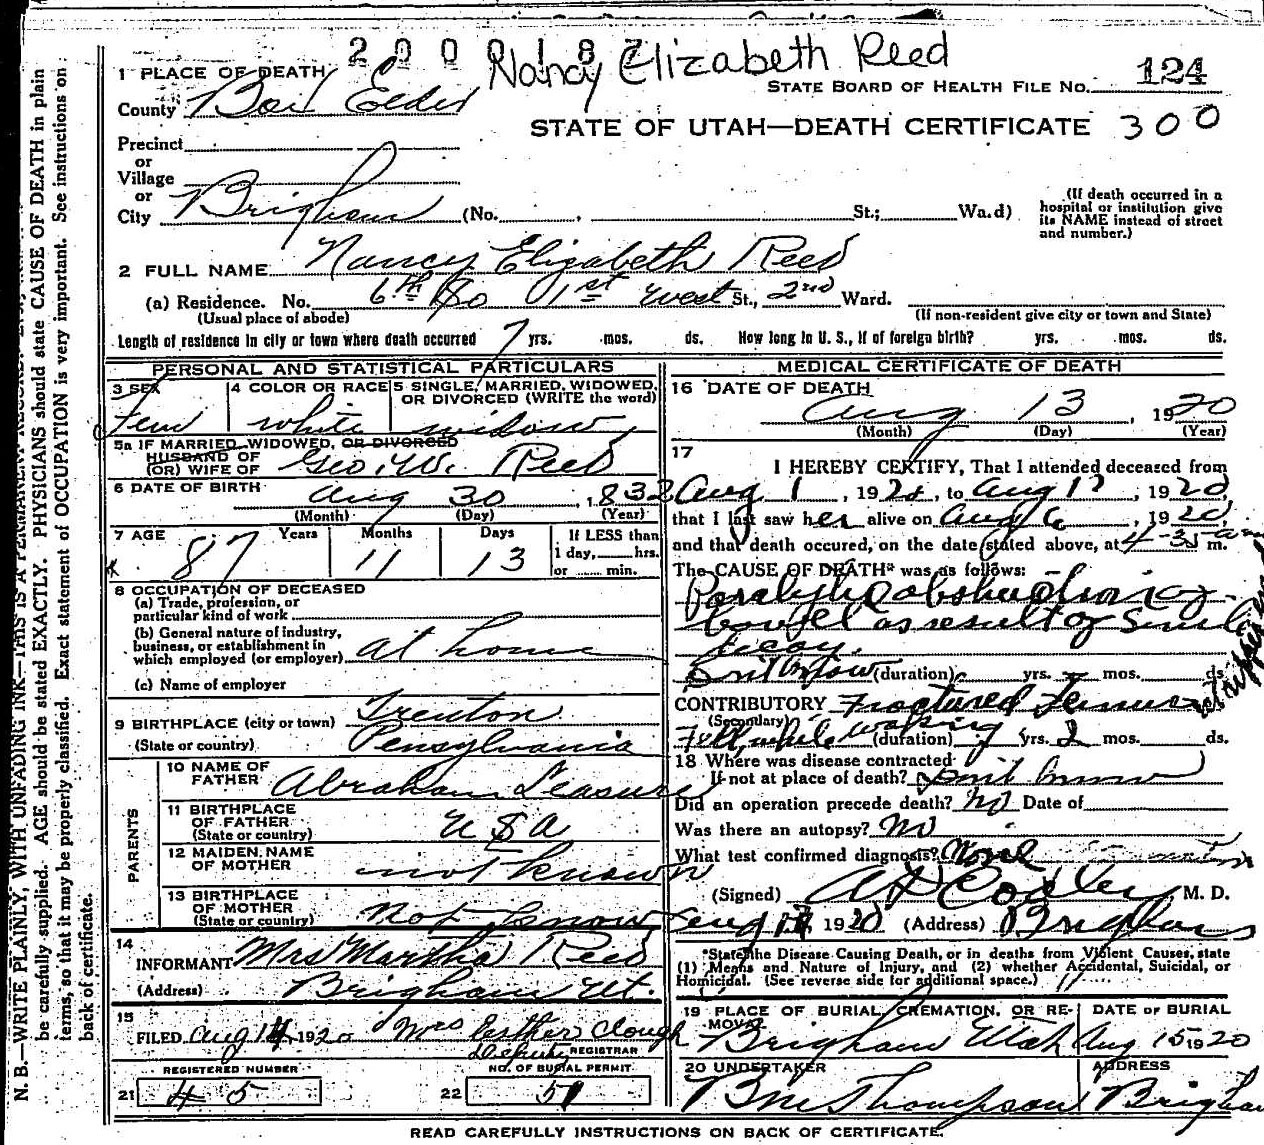 2000187 Nancy Elizabeth Reed
STATE BOARD OF HEALTH FILE NO. 124
STATE OF UTAH—DEATH CERTIFICATE 300
1 PLACE OF DEATH
County Box Elder
Precinct
or
Village
or
City Brigham (No. , St.; Wa.d)
(If death occurred in a
hospital or institution give
its NAME instead of street
and number.)
2 FULL NAME Nancy Elizabeth Reed
(a) Residence. No. 6th So 1st West St., 2nd Ward.
(Usual place of abode)
(If non-resident give city or town and State)
Length of residence in city or town where death occurred 7 yrs. mos. ds. How long in U. S., if of foreign birth? yrs. mos. ds.
PERSONAL AND STATISTICAL PARTICULARS
3 SEX
Fem
4 COLOR OR RACE
white
5 SINGLE, MARRIED, WIDOWED,
OR DIVORCED (WRITE the word)
widow
5a IF MARRIED, WIDOWED, OR DIVORCED
HUSBAND OF
(OR) WIFE OF Geo. W. Reed
6 DATE OF BIRTH Aug 30, 1832
(Month) (Day) (Year)
7 AGE Years Months Days
87 11 13
If LESS than
1 day, hrs.
or min.
8 OCCUPATION OF DECEASED
(a) Trade, profession, or
particular kind of work
(b) General nature of industry,
business, or establishment in
which employed (or employer) at home
(c) Name of employer
9 BIRTHPLACE (city or town) Trenton
(State or country) Pensylvania
PARENTS
10 NAME OF
FATHER Abraham Leasure
11 BIRTHPLACE
OF FATHER
(State or country) USA
12 MAIDEN NAME
OF MOTHER not known
13 BIRTHPLACE
OF MOTHER
(State or country) Not know
14
INFORMANT Mrs Martha Reed
(Address) Brigham Ut.
15
FILED Aug 14, 1920 Mrs Esther Clough
Deputy REGISTRAR
REGISTERED NUMBER
21 45
NO. OF BURIAL PERMIT
22 51
MEDICAL CERTIFICATE OF DEATH
16 DATE OF DEATH
Aug 13, 1920
(Month) (Day) (Year)
17
I HEREBY CERTIFY, That I attended deceased from
Aug 1, 1920, to Aug 1, 1920,
that I last saw her alive on Aug 6, 1920,
and that death occured, on the date stated above, at 4-35 a m.
The CAUSE OF DEATH* was as follows:
Paralytic obstruction of
bowel as result of Senile
decay.
Dont know (duration) yrs. mos. ds.
CONTRIBUTORY Fractured Femur
(Secondary)
Fell while walking (duration) 7 yrs. 2 mos. ds.
18 Where was disease contracted
If not at place of death? Dont know
Did an operation precede death? No Date of
Was there an autopsy? No
What test confirmed diagnosis? None
(Signed) M. D.
Aug 1920 (Address) Brigham
*State the Disease Causing Death, or in deaths from Violent Causes, state
(1) Means and Nature of Injury, and (2) whether Accidental, Suicidal, or
Homicidal. (See reverse side for additional space.)
19 PLACE OF BURIAL, CREMATION, OR RE-
MOVAL
Brigham Utah
DATE OF BURIAL
Aug 15 1920
20 UNDERTAKER
Thompson
ADDRESS
Brigham
READ CAREFULLY INSTRUCTIONS ON BACK OF CERTIFICATE.
N. B.—WRITE PLAINLY, WITH UNFADING INK—THIS IS A PERMANENT RECORD.
be carefully supplied. AGE should be stated EXACTLY. PHYSICIANS should state CAUSE OF DEATH in plain
terms, so that it may be properly classified. Exact statement of OCCUPATION is very important. See instructions on
back of certificate.